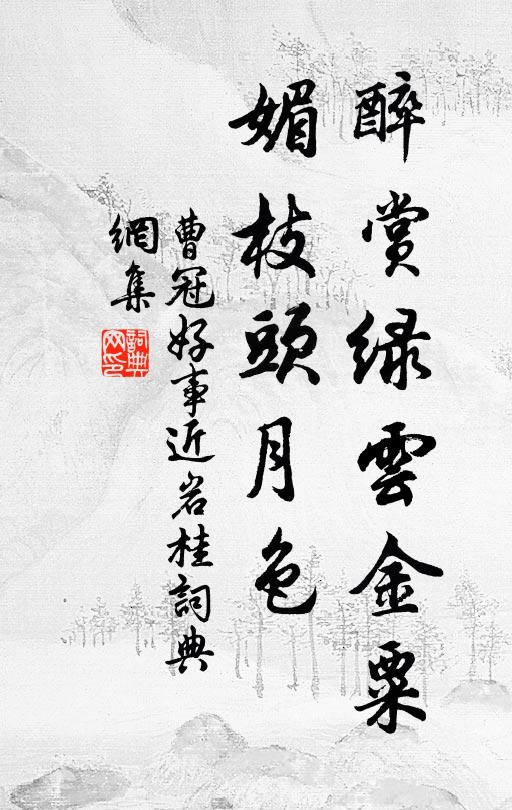 醉賞緑雲金粟
媚枝頭月色
曹冠好事近岩桂詞典
網集
詞典
网印